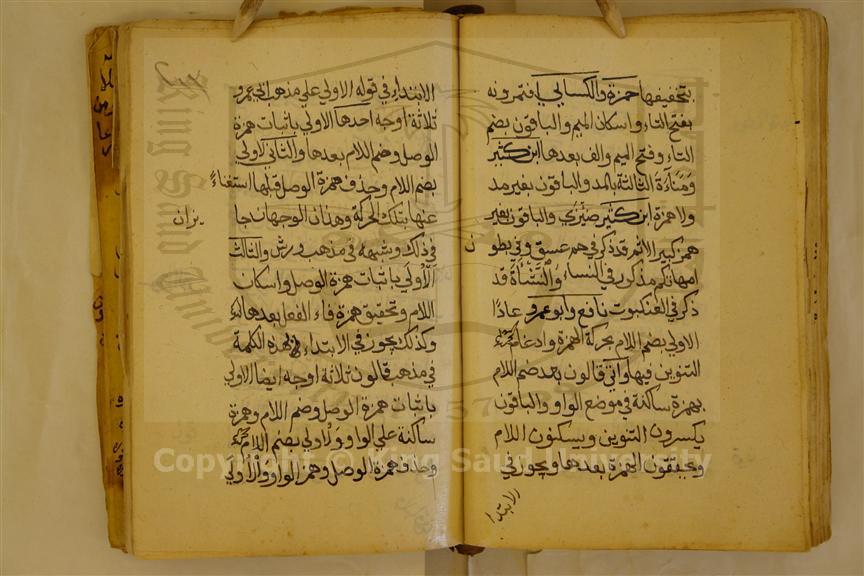 بتخفيفها حمزة والكسائي افتمرونه
بفتح التاء واسكان الميم والباقون بضم
التاء وفتح الميم والف بعدها ابن كثير
ومناءة الثالثة بالمد والباقون بغير مد
ولا همزة ابن كثير ضئزى والباقون بغير
همز كبير الاثم قد ذكر في حم عسق وفي بطون
امهاتكم مذكور في النساء والنشأة قد
ذكر في العنكبوت نافع وابو عمرو عادا
الاولى بضم اللام بحركة الهمزة وادغام
التنوين فيها واتى قالون بعد ضم اللام
بهمزة ساكنة في موضع الواو والباقون
يكسرون التنوين ويسكنون اللام
ويحققون الهمزة بعدها ويجوز في
الابتدا
الابتداء في قوله الاولى على مذهب ابي عمرو
ثلاثة اوجه احدها الاولى باثبات همزة
الوصل وضم اللام بعدها والثاني لاولى
بضم اللام وحذف همزة الوصل قبلها استغناء
عنها بتلك الحركة وهذان الوجهان جا
يزان
في ذلك وشبهه في مذهب ورش والثالث
الأولى باثبات همزة الوصل واسكان
اللام وتحقيق همزة فاء الفعل بعدها
وكذلك يجوز في الابتداء بهذه الكلمة
في مذهب قالون ثلاثة اوجه ايضا الاولى
باثبات همزة الوصل وضم اللام وهمزة
ساكنة على الواو ولاولى بضم اللام
وحذف همزة الوصل وهمز الواو والأولى
Copyright © King Saud University